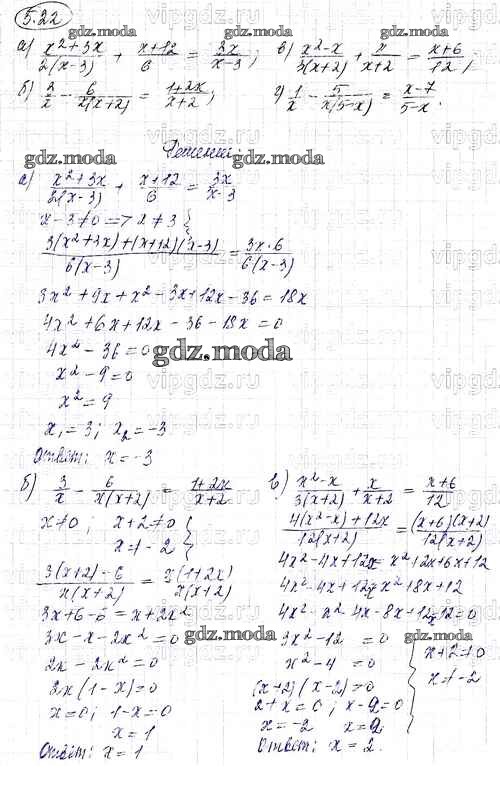 5.22
а) (x²+3x)/(2(x-3)) + (x+12)/6 = 3x/(x-3); в) (x²-x)/(3(x+2)) + x/(x+2) = (x+6)/12;
б) 3/x - 6/(x(x+2)) = (1+2x)/(x+2); г) 1/x - 5/(x(5-x)) = (x-7)/(5-x).
Решение:
gdz.moda
gdz.moda
а) (x²+3x)/(2(x-3)) + (x+12)/6 = 3x/(x-3)
x-3≠0 => x≠3 }
(3(x²+3x)+(x+12)(x-3))/(6(x-3)) = 3x·6/(6(x-3))
3x²+9x+x²-3x+12x-36=18x
4x²+6x+12x-36-18x=0
4x²-36=0
gdz.moda
x²-9=0
x²=9
x₁=3; x₂=-3
Ответ: x=-3
б) 3/x - 6/(x(x+2)) = (1+2x)/(x+2)
x≠0; x+2≠0 }
x≠-2
(3(x+2)-6)/(x(x+2)) = x(1+2x)/(x(x+2))
3x+6-6=x+2x²
3x-x-2x²=0
gdz.moda
2x-2x²=0
2x(1-x)=0
x=0; 1-x=0
x=1
Ответ: x=1
в) (x²-x)/(3(x+2)) + x/(x+2) = (x+6)/12
(4(x²-x)+12x)/(12(x+2)) = ((x+6)(x+2))/(12(x+2))
4x²-4x+12x=x²+2x+6x+12
4x²-4x+12x=x²+8x+12
4x²-x²-4x-8x+12x-12=0
3x²-12=0
gdz.moda
x²-4=0
(x+2)(x-2)=0
2+x=0; x-2=0
x=-2 x=2
{ x+2≠0
x≠-2
Ответ: x=2.
gdz.moda